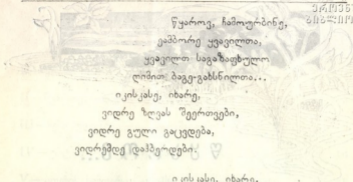 წყაროვ, ჩამოურბინე,
ეამბორე ყვავილთა,
ყვავილთ საგაზაფხულო
ღიმით ბაგე-გახსნილთა...
იკისკასე, იხარე,
ვიდრე ზღვას შეერთვები,
ვიდრე გული გაცვდება,
ვიდრემდე დაჰბერდები.
იკისკასე, იხარე,